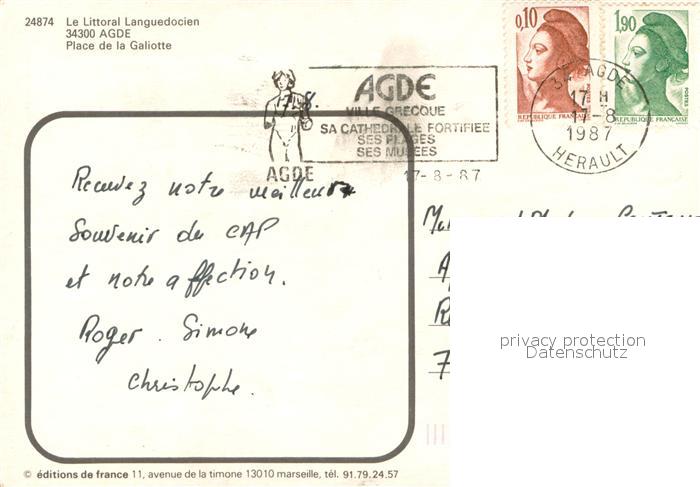 24874 Le Littoral Languedocien
34300 AGDE
Place de la Galiotte
0,10
1,90
POSTES
RÉPUBLIQUE FRANÇAISE
RÉPUBLIQUE FRANÇAISE
34 AGDE
17 H
-8
1987
HERAULT
AGDE
VILLE GRECQUE
SA CATHEDRALE FORTIFIEE
SES PLAGES
SES MUSÉES
AGDE
17-8-87
Recevez notre meilleur
Souvenir du CAP
et notre affection.
Roger. Simone
Christophe.
7
privacy protection
Datenschutz
© éditions de france 11, avenue de la timone 13010 marseille, tél. 91.79.24.57